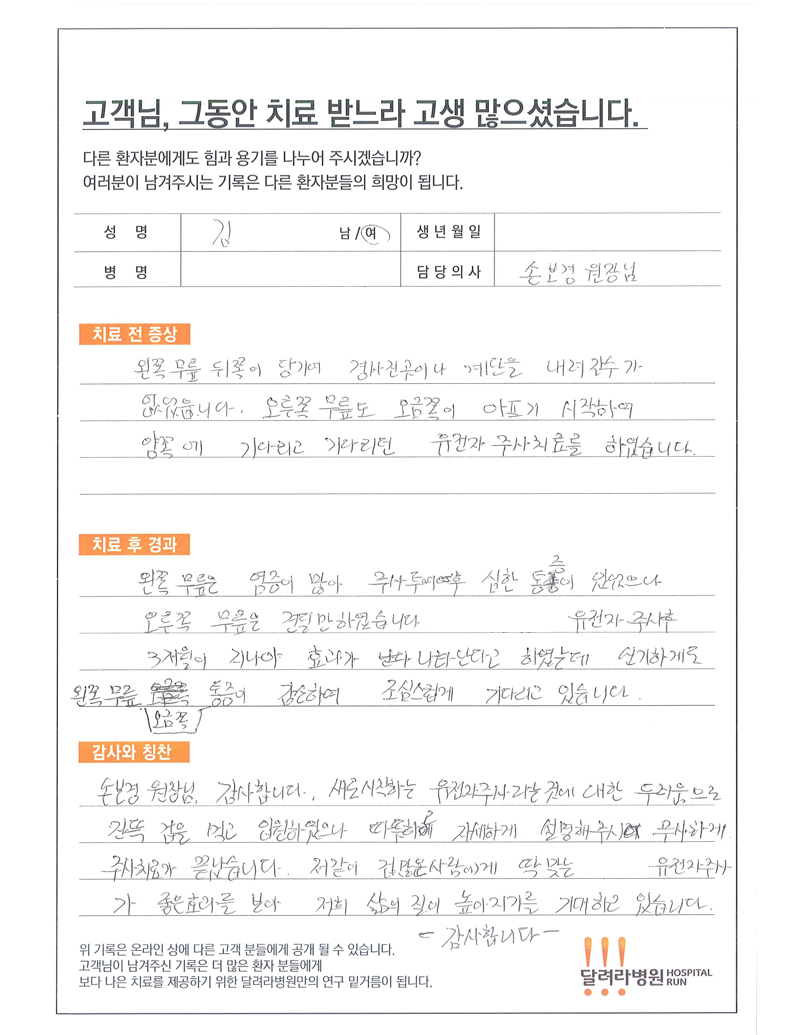 고객님, 그동안 치료 받느라 고생 많으셨습니다.
다른 환자분에게도 힘과 용기를 나누어 주시겠습니까?
여러분이 남겨주시는 기록은 다른 환자분들의 희망이 됩니다.
성 명 김 남/여 생년월일
병 명 담당의사 손보경 원장님
치료 전 증상
왼쪽 무릎 뒤쪽이 당기며 경사진곳이나 계단을 내려갈수가
없었습니다. 오른쪽 무릎도 오금쪽이 아프기 시작하여
양쪽에 기다리고 기다리던 유전자 주사치료를 하였습니다.
치료 후 경과
왼쪽 무릎은 염증이 많아 주사투여후 심한 통증이 있었으나
오른쪽 무릎은 견딜만하였습니다 유전자 주사후
3개월이 지나야 효과가 나타난다고 하였는데 신기하게도
왼쪽 무릎 오금쪽 통증이 감소하여 조심스럽게 기다리고 있습니다.
감사와 칭찬
손보경 원장님, 감사합니다. 새로시작하는 유전자주사라는것에 대한 두려움으로
잔뜩 겁을 먹고 입원하였으나 따뜻하게 자세하게 설명해주시어 무사하게
주사치료가 끝났습니다. 저같이 겁많은사람에게 딱맞는 유전자주사
가 좋은효과를 보아 저희 삶의 질이 높아지기를 기대하고 있습니다.
- 감사합니다 -
위 기록은 온라인 상에 다른 고객 분들에게 공개 될 수 있습니다.
고객님이 남겨주신 기록은 더 많은 환자 분들에게
보다 나은 치료를 제공하기 위한 달려라병원만의 연구 밑거름이 됩니다.
달려라병원 HOSPITAL RUN